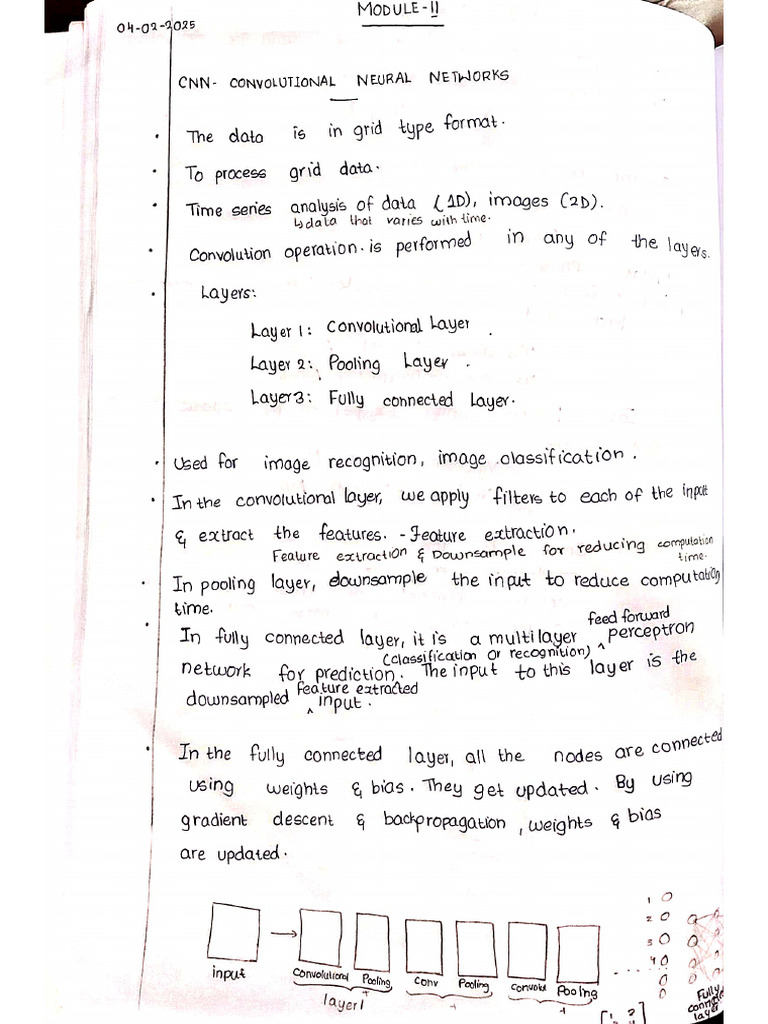 MODULE-II
04-02-2025
CNN- CONVOLUTIONAL NEURAL NETWORKS
• The data is in grid type format.
• To process grid data.
• Time series analysis of data (1D), images (2D).
↳ data that varies with time.
• Convolution operation. is performed in any of the layers.
• Layers:
Layer 1: Convolutional Layer.
Layer 2: Pooling Layer.
Layer 3: Fully connected Layer.
• Used for image recognition, image classification.
• In the convolutional layer, we apply filters to each of the input
& extract the features. - Feature extraction.
Feature extraction & Downsample for reducing computation
time.
• In pooling layer, downsample the input to reduce computation
time.
feed forward
• In fully connected layer, it is a multilayer ^ perceptron
(classification or recognition)
network for prediction. The input to this layer is the
feature extracted
downsampled ^ input.
• In the fully connected layer, all the nodes are connected
using weights & bias. They get updated. By using
gradient descent & backpropagation, weights & bias
are updated.
1
2
3
4
input → Convolutional Pooling Conv Pooling Convolu Pooling
+ + +
layer 1
Fully
connected
layer